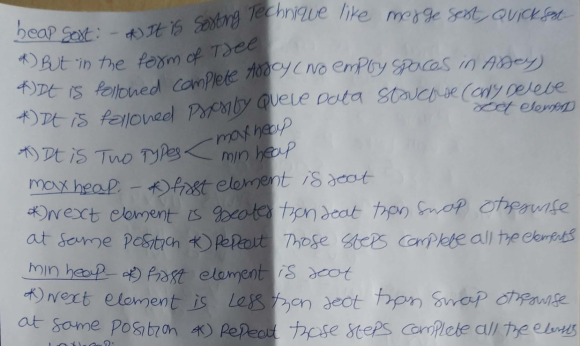 heap sort: - *) It is Sorting Technique like merge sort, Quick sort
*) But in the form of Tree
*) It is followed complete Array (No empty spaces in Array)
*) It is followed Priority Queue Data structure (only Delete
root element)
*) It is Two Types max heap
min heap
max heap: - *) first element is root
*) Next element is greater than root than swap otherwise
at same position *) Repeat Those steps complete all the elements
min heap - *) first element is root
*) Next element is Less than root than swap otherwise
at same position *) Repeat those steps complete all the elements